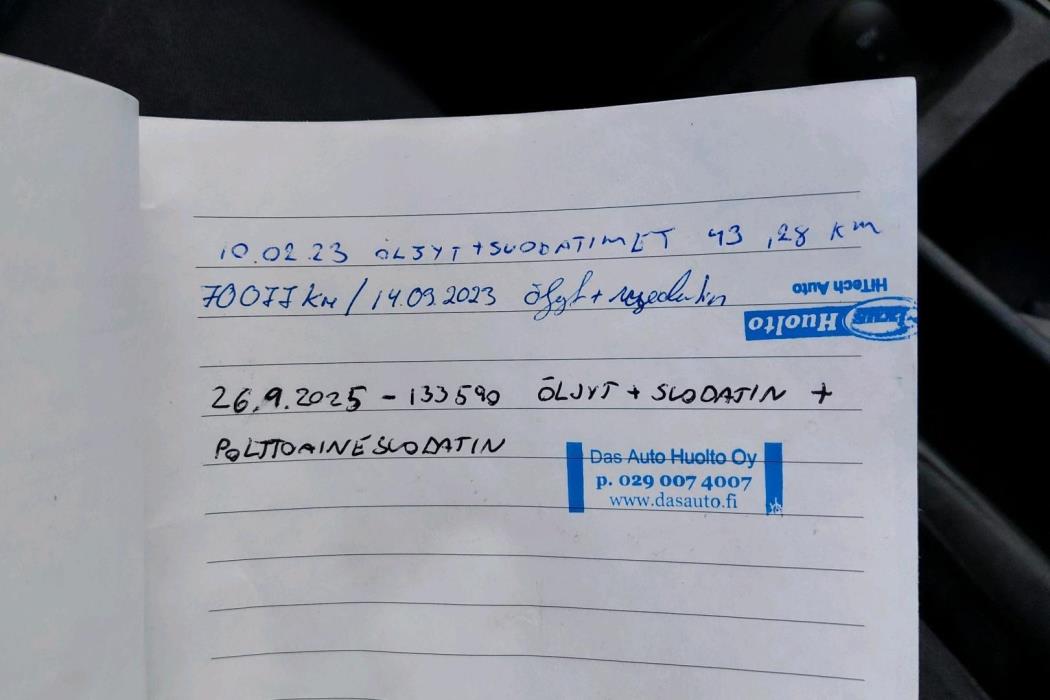 10.02.23 ÖLJYT + SUODATIMET 43,28 KM
70077 km / 14.09.2023 Öljyt +
HiTech Auto
Huolto
26.9.2025 - 133590 ÖLJYT + SUODATIN +
POLTTOAINESUODATIN
Das Auto Huolto Oy
p. 029 007 4007
www.dasauto.fi